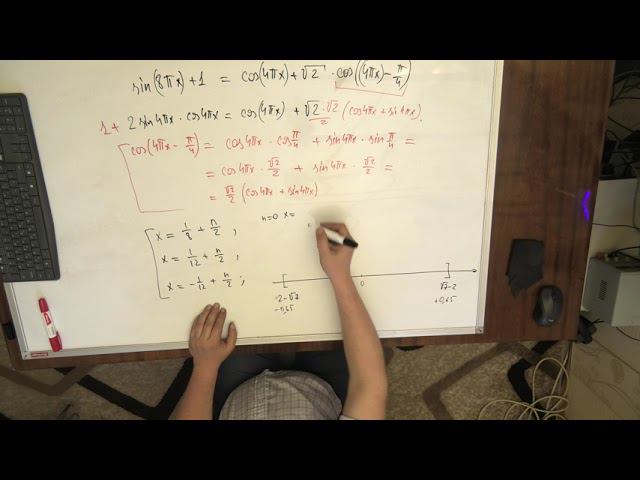 sin(8πx)+1 = cos(4πx)+√2 · cos((4πx)-π/4)
1+ 2 sin4πx · cos4πx = cos(4πx) + √2·√2/2 (cos4πx + sin4πx).
cos(4πx - π/4) = cos4πx · cos π/4 + sin4πx · sin π/4 =
= cos4πx · √2/2 + sin4πx · √2/2 =
= √2/2 (cos4πx + sin4πx)
x = 1/8 + n/2 ;
n=0 x=
x = 1/12 + n/2 ;
x = -1/12 + n/2 ;
0